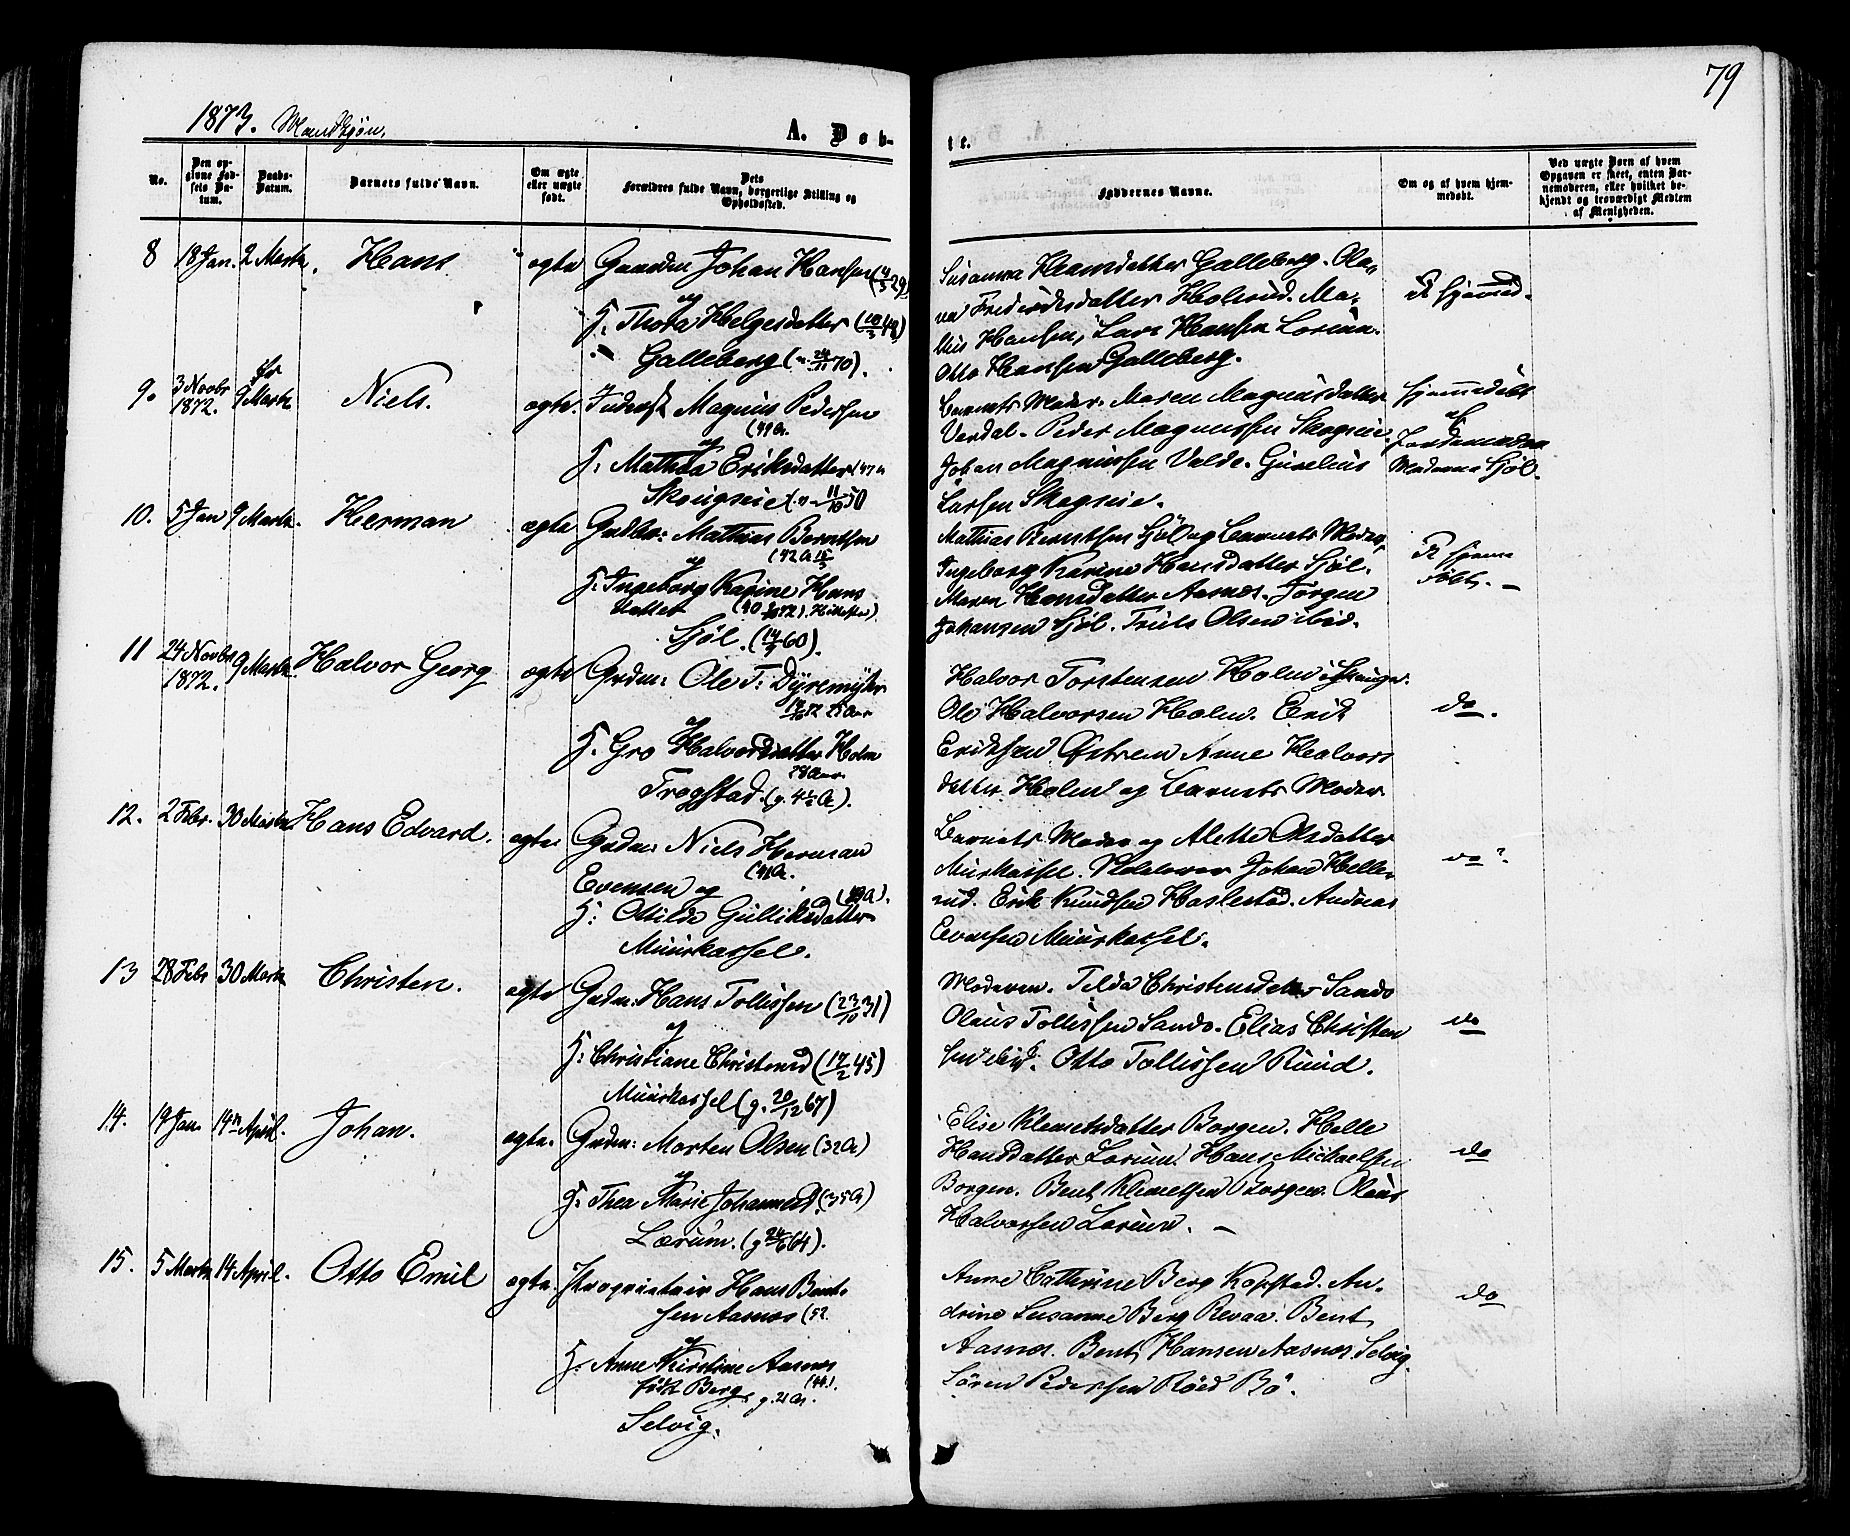 79
1873. Mandkjøn.
A. Døb-
te.
No.
Den op-
givne Fød-
sels Da-
tum.
Daabs-
Datum.
Barnets fulde Navn.
Om ægte
eller uægte
født.
Dets
Forældres fulde Navn, borgerlige Stilling og
Opholdssted.
Faddernes Navne.
Om og af hvem hjem-
medøbt.
Ved uægte Børn af hvem
Opgaven er skeet, enten Bar-
nemoderen, eller hvilket be-
kjendt og troværdigt Medlem
af Menigheden.
8 18 Jan. 2 Marts. Hans ægte Johan Hansen
og
H: Thora Helgesdatter
Galleberg
Susanna Hansdatter Galleberg. Ola-
va Holsrud. Ma-
Hansen, Lars Hansen Lorum.
Otto Hansen Galleberg.
R hjemmed.
9. 3 Novbr 1872. 9 Marts Niels. ægte. Magnus Pedersen
(49 A.
og
H: Mathea Eriksdatter
Skougseie
Barnets Moder. Maren Magnusdatter
Verdal. Peder Magnussen Skogseie.
Johan Magnussen Valde. Guselius
Larsen Skogseie.
hjemmedøbt
af
Jordemoder
Sjøl.
10. 5 Jan 9 Marts. Herman ægte Gadbr: Mathias Berntsen
og
H: Ingeborg Karine Hans
datter
Sjøl.
Mathias Berntsen Sjøl og Barnets Moder,
Ingeborg Karine Hansdatter Sjøl.
Maren Hansdatter Aasnes. Jørgen
Johansen Sjøl. Truls Olsen ibid.
R hjemme
døbt. –
11 24 Novbr 1872. 9 Marts. Halvor Georg ægte Grdm: Ole T: Dyremyhr
25 Aar
og
H: Gro Halvorsdatter Holm
28 Aar
Trogstad. (g. 4½ A).
Halvor Torstensen Holm i
Ole Halvorsen Holm. Erik
Eriksen Østrem Anne Halvors
datter Holm og Barnets Moder.
do.
12. 2 Febr. 30 Marts Hans Edvard. ægte. Grdm: Niels Herman
(41 A.
Evensen og
H: Otilde Gulliksdatter
Muurkassel.
Barnets Moder og Alette Olsdatter
Murkassel. Johan Helle-
rud. Erik Knudsen Haslestad. Andreas
Evensen Muurkassel.
do.
13 28 Febr 30 Marts Christen. ægte Grdm. Hans Tollefsen (23/10 31)
og
H: Christiane Christensd (17/2 45)
Muurkassel (g. 20/12 67)
Moderen. Tilda Christensdatter Sando
Olaus Tollefsen Sando. Elias Christen
sen ibid. Otto Tollefsen Ruud.
do
14. 19 Jan. 14de April. Johan. ægte. Grdm: Morten Olsen (32 A)
og
H. Thea Marie Johannesd. (35 A)
Lørum. (g 24/6 64).
Elise Klemetsdatter Borgen. Helle
Hansdatter Lorum. Hans Michaelsen
Borgen. Bent Klemetsen Borgen. Olaus
Halvorsen Lorum. –
do
15. 5 Marts 14 April. Otto Emil ægte. Proprietair Hans Bent-
sen Aasnes (52.
og
H. Anne Kirstine Aasnes
født Berg (44.)
g. 21 A.
Selvig.
Anne Cathrine Berg Kopstad. An-
drine Susanne Berg Revaa. Bent
Aasnes. Bent Hansen Aasnes, Selvig.
Søren Pedersen Røed Bö.
do